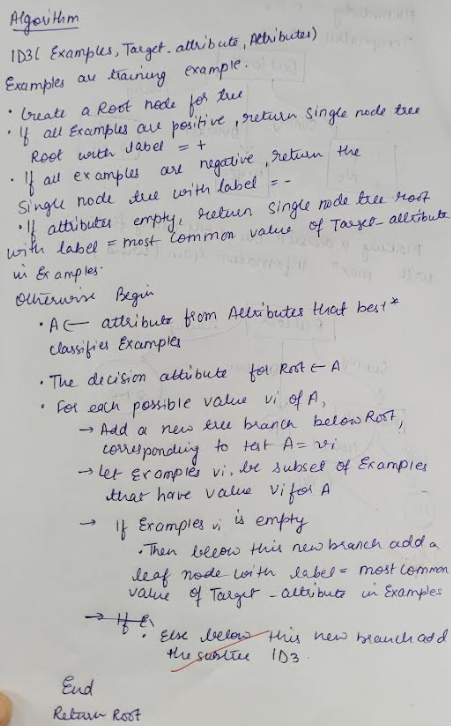 Algorithm
ID3( Examples, Target-attribute, Attributes)
Examples are training example.
• Create a Root node for tree
• If all Examples are positive, return single node tree
Root with label = +
• If all examples are negative, return the
single node tree with label = -
• If attributes empty, return single node tree root
with label = most common value of Target-attribute
in Examples.
Otherwise Begin
• A ← attribute from Attributes that best*
classifies Examples
• The decision attribute for Root ← A
• For each possible value vi of A,
→ Add a new tree branch below Root,
corresponding to test A = vi
→ Let Examples vi, be subset of Examples
that have value vi for A
→ If Examples vi is empty
• Then below this new branch add a
leaf node with label = most common
value of Target-attribute in Examples
→ If E
• Else below this new branch add
the subtree ID3.
End
Return Root